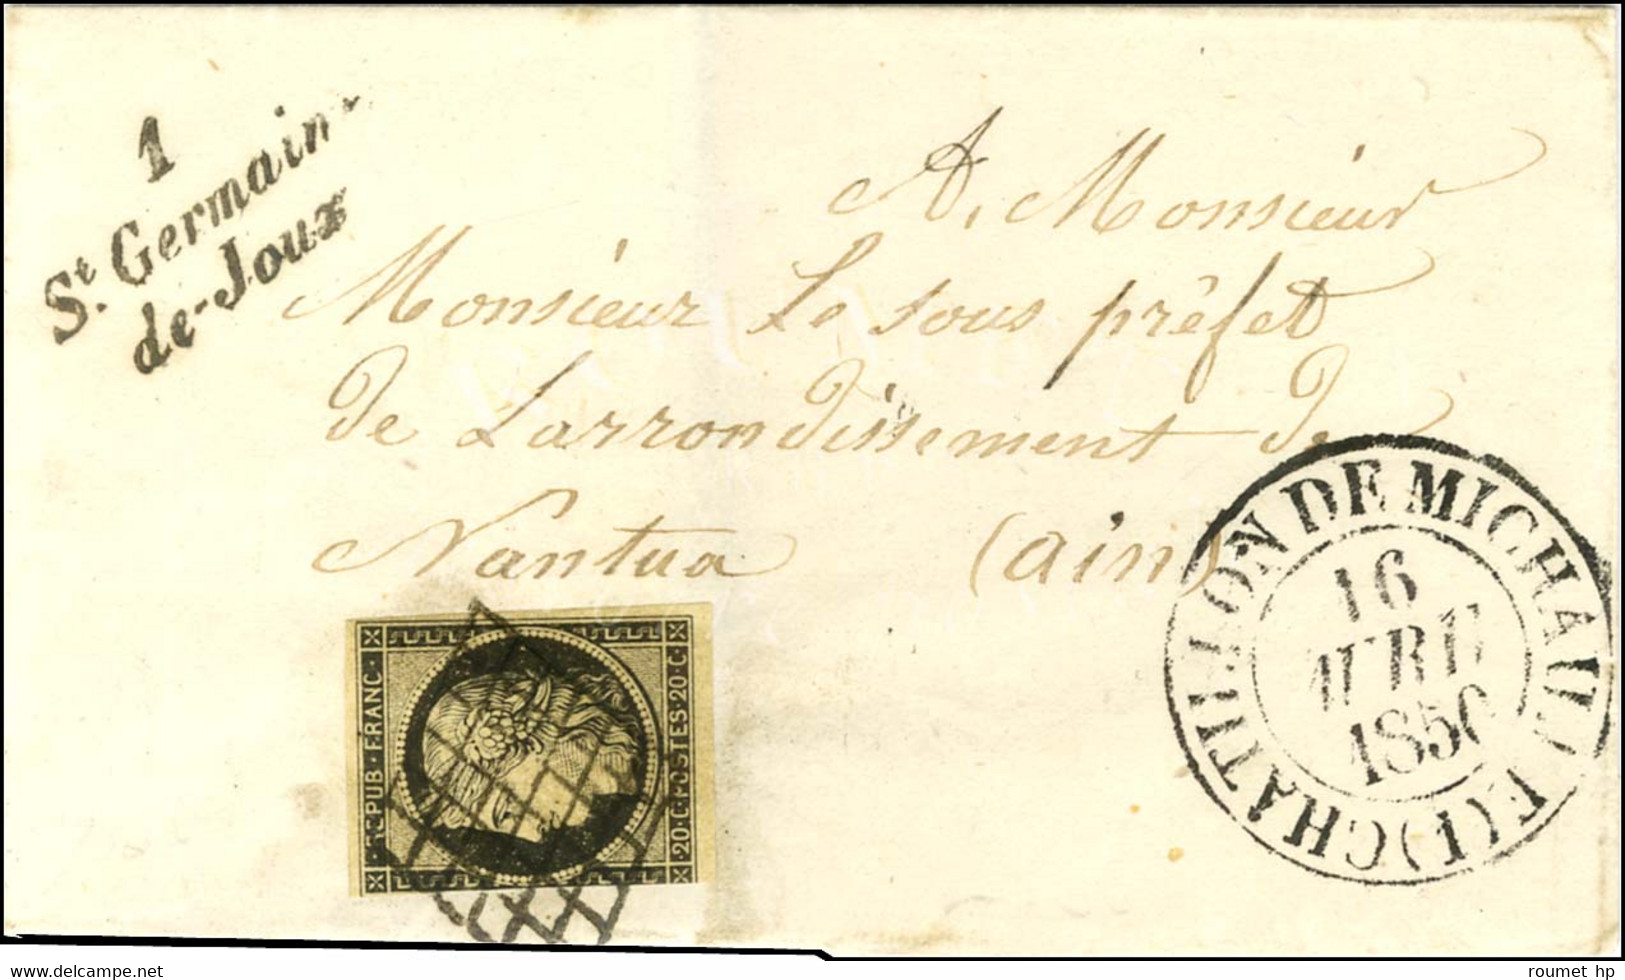 1
St. Germain-
de-Joux
A. Monsieur
Monsieur Le sous préfet
de Larrondissement de
Nantua (ain)
CHATILLON DE MICHAILLE (1)
16
AVRIL
1850
REPUB·FRANC·
20·C·POSTES·20·C·
www.delcampe.net
roumet_hp